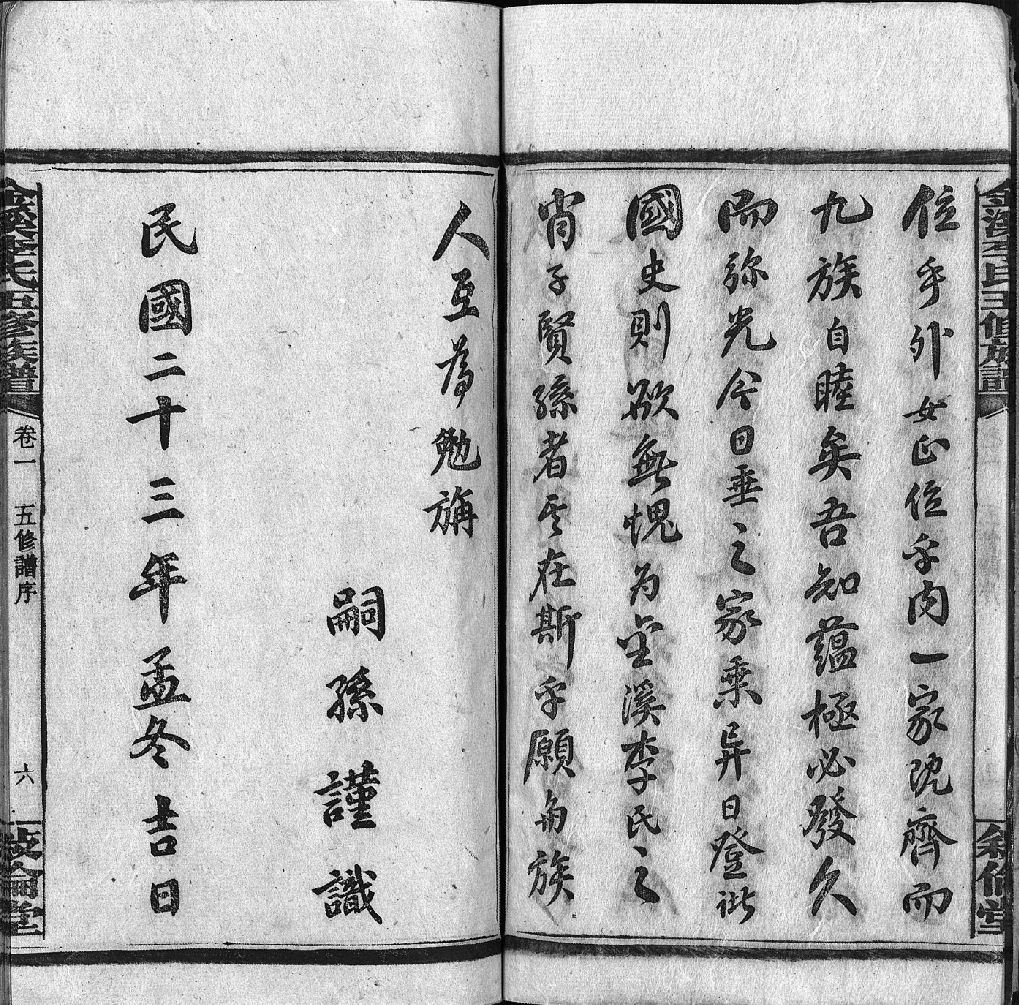 金溪李氏五修族譜
敘倫堂
位乎外女正位乎內一家既齊而
九族自睦矣吾知蘊極必發久
而弥光今日垂之家乘异日登諸
國史則欲無愧为金溪李氏之
肖子賢孫者其在斯乎願與族
人互為勉旃
嗣孫謹識
民國二十三年孟冬吉日
金溪李氏五修族譜
卷一 五修譜序
六
敘倫堂